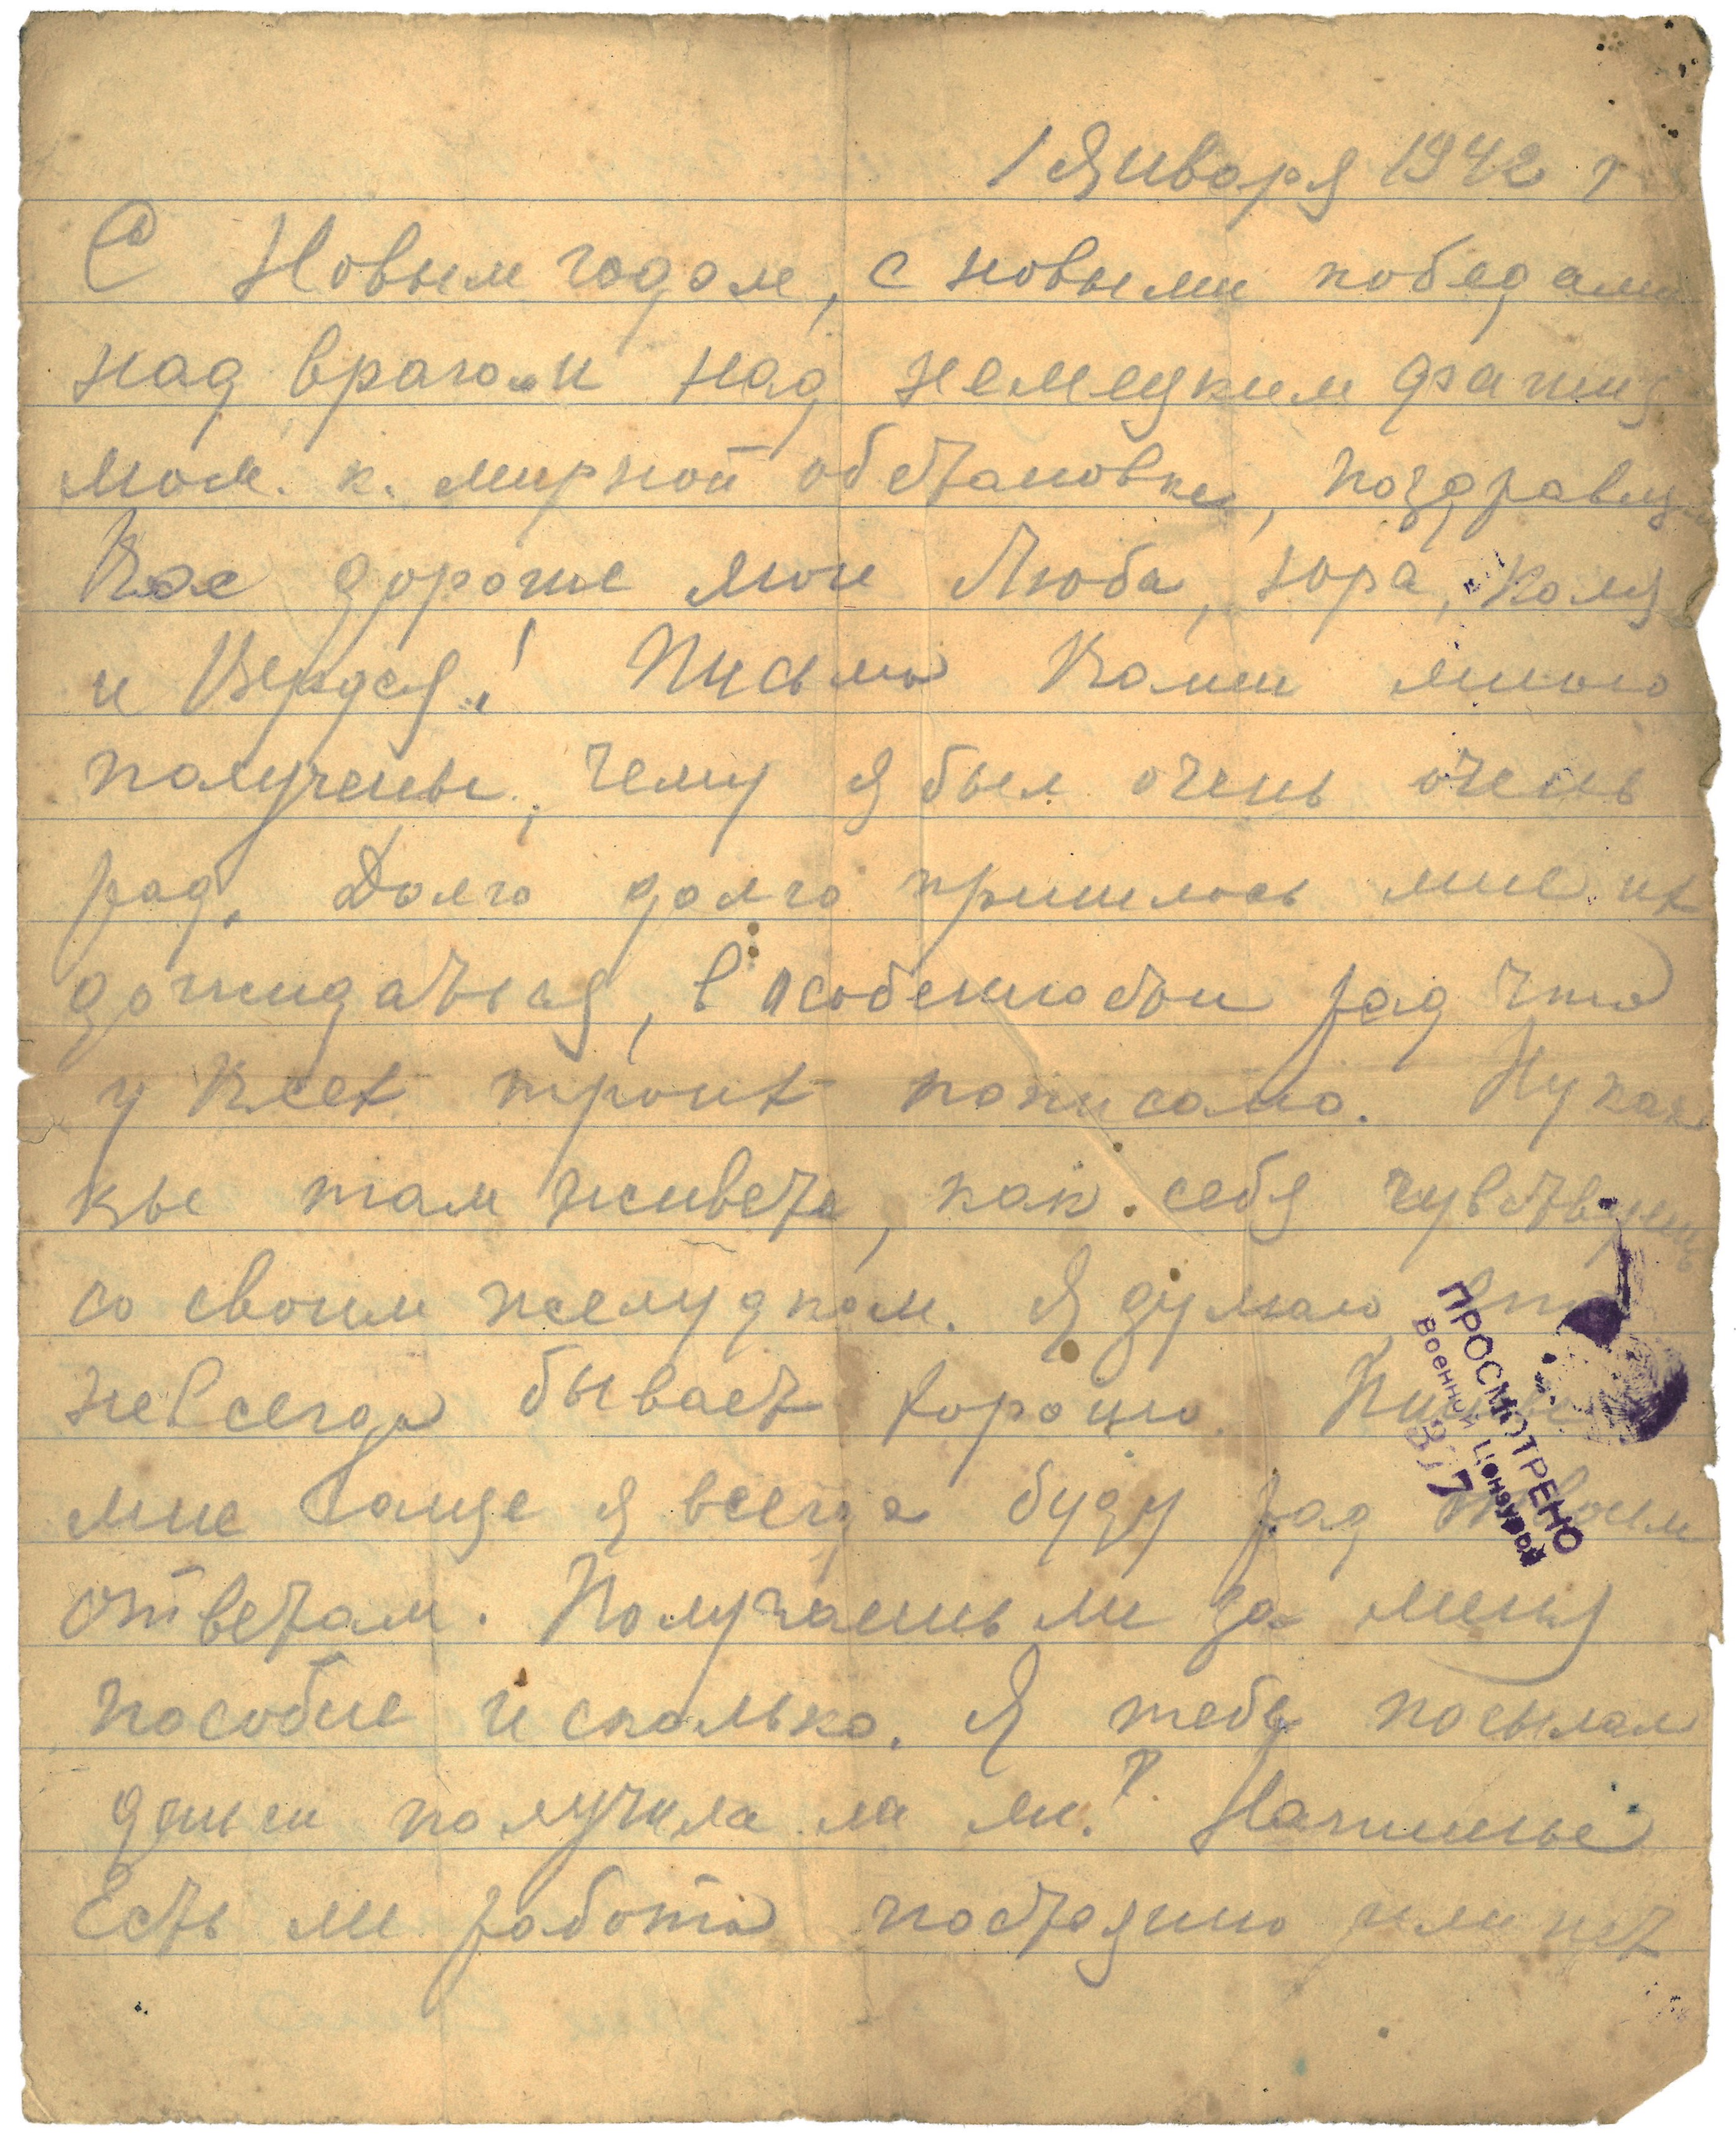 1 Января 1942 г
С Новым годом, с новыми победами
над врагом над немецким фашиз
мом. к. мирной обстановке, поздравля
Вас дорогие мои Люба, Юра, Коля
и Вердся! Письма Вами много
получены, чему я был очень очень
рад. Долго долго пришлось мне их
дожидаться, в особенности рад что
у Всех троих пописано. Ну как
вы там живете, как себя чувствуешь
со своим желудком. Я думаю что
невсегда бывает хорошо. Пишите
мне чаще я всегда буду рад твоим
ответам. Получаешь ли за меня
пособие и сколько. Я тебе посылал
деньги получила ли их? Напишы
Есть ли работа постоянно или нет
ПРОСМОТРЕНО
Военной Цензурой